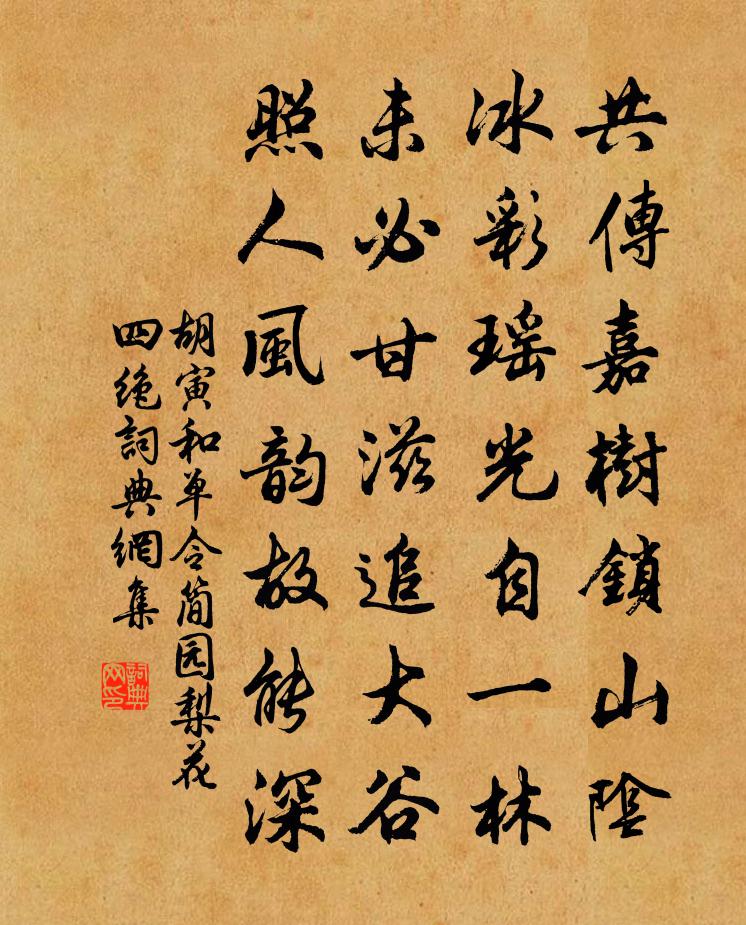 共傳嘉樹鎖山陰
冰彩瑶光自一林
未必甘滋追大谷
照人風韵故能深
胡寅和单令简园梨花
四绝詞典網集
詞典
网印